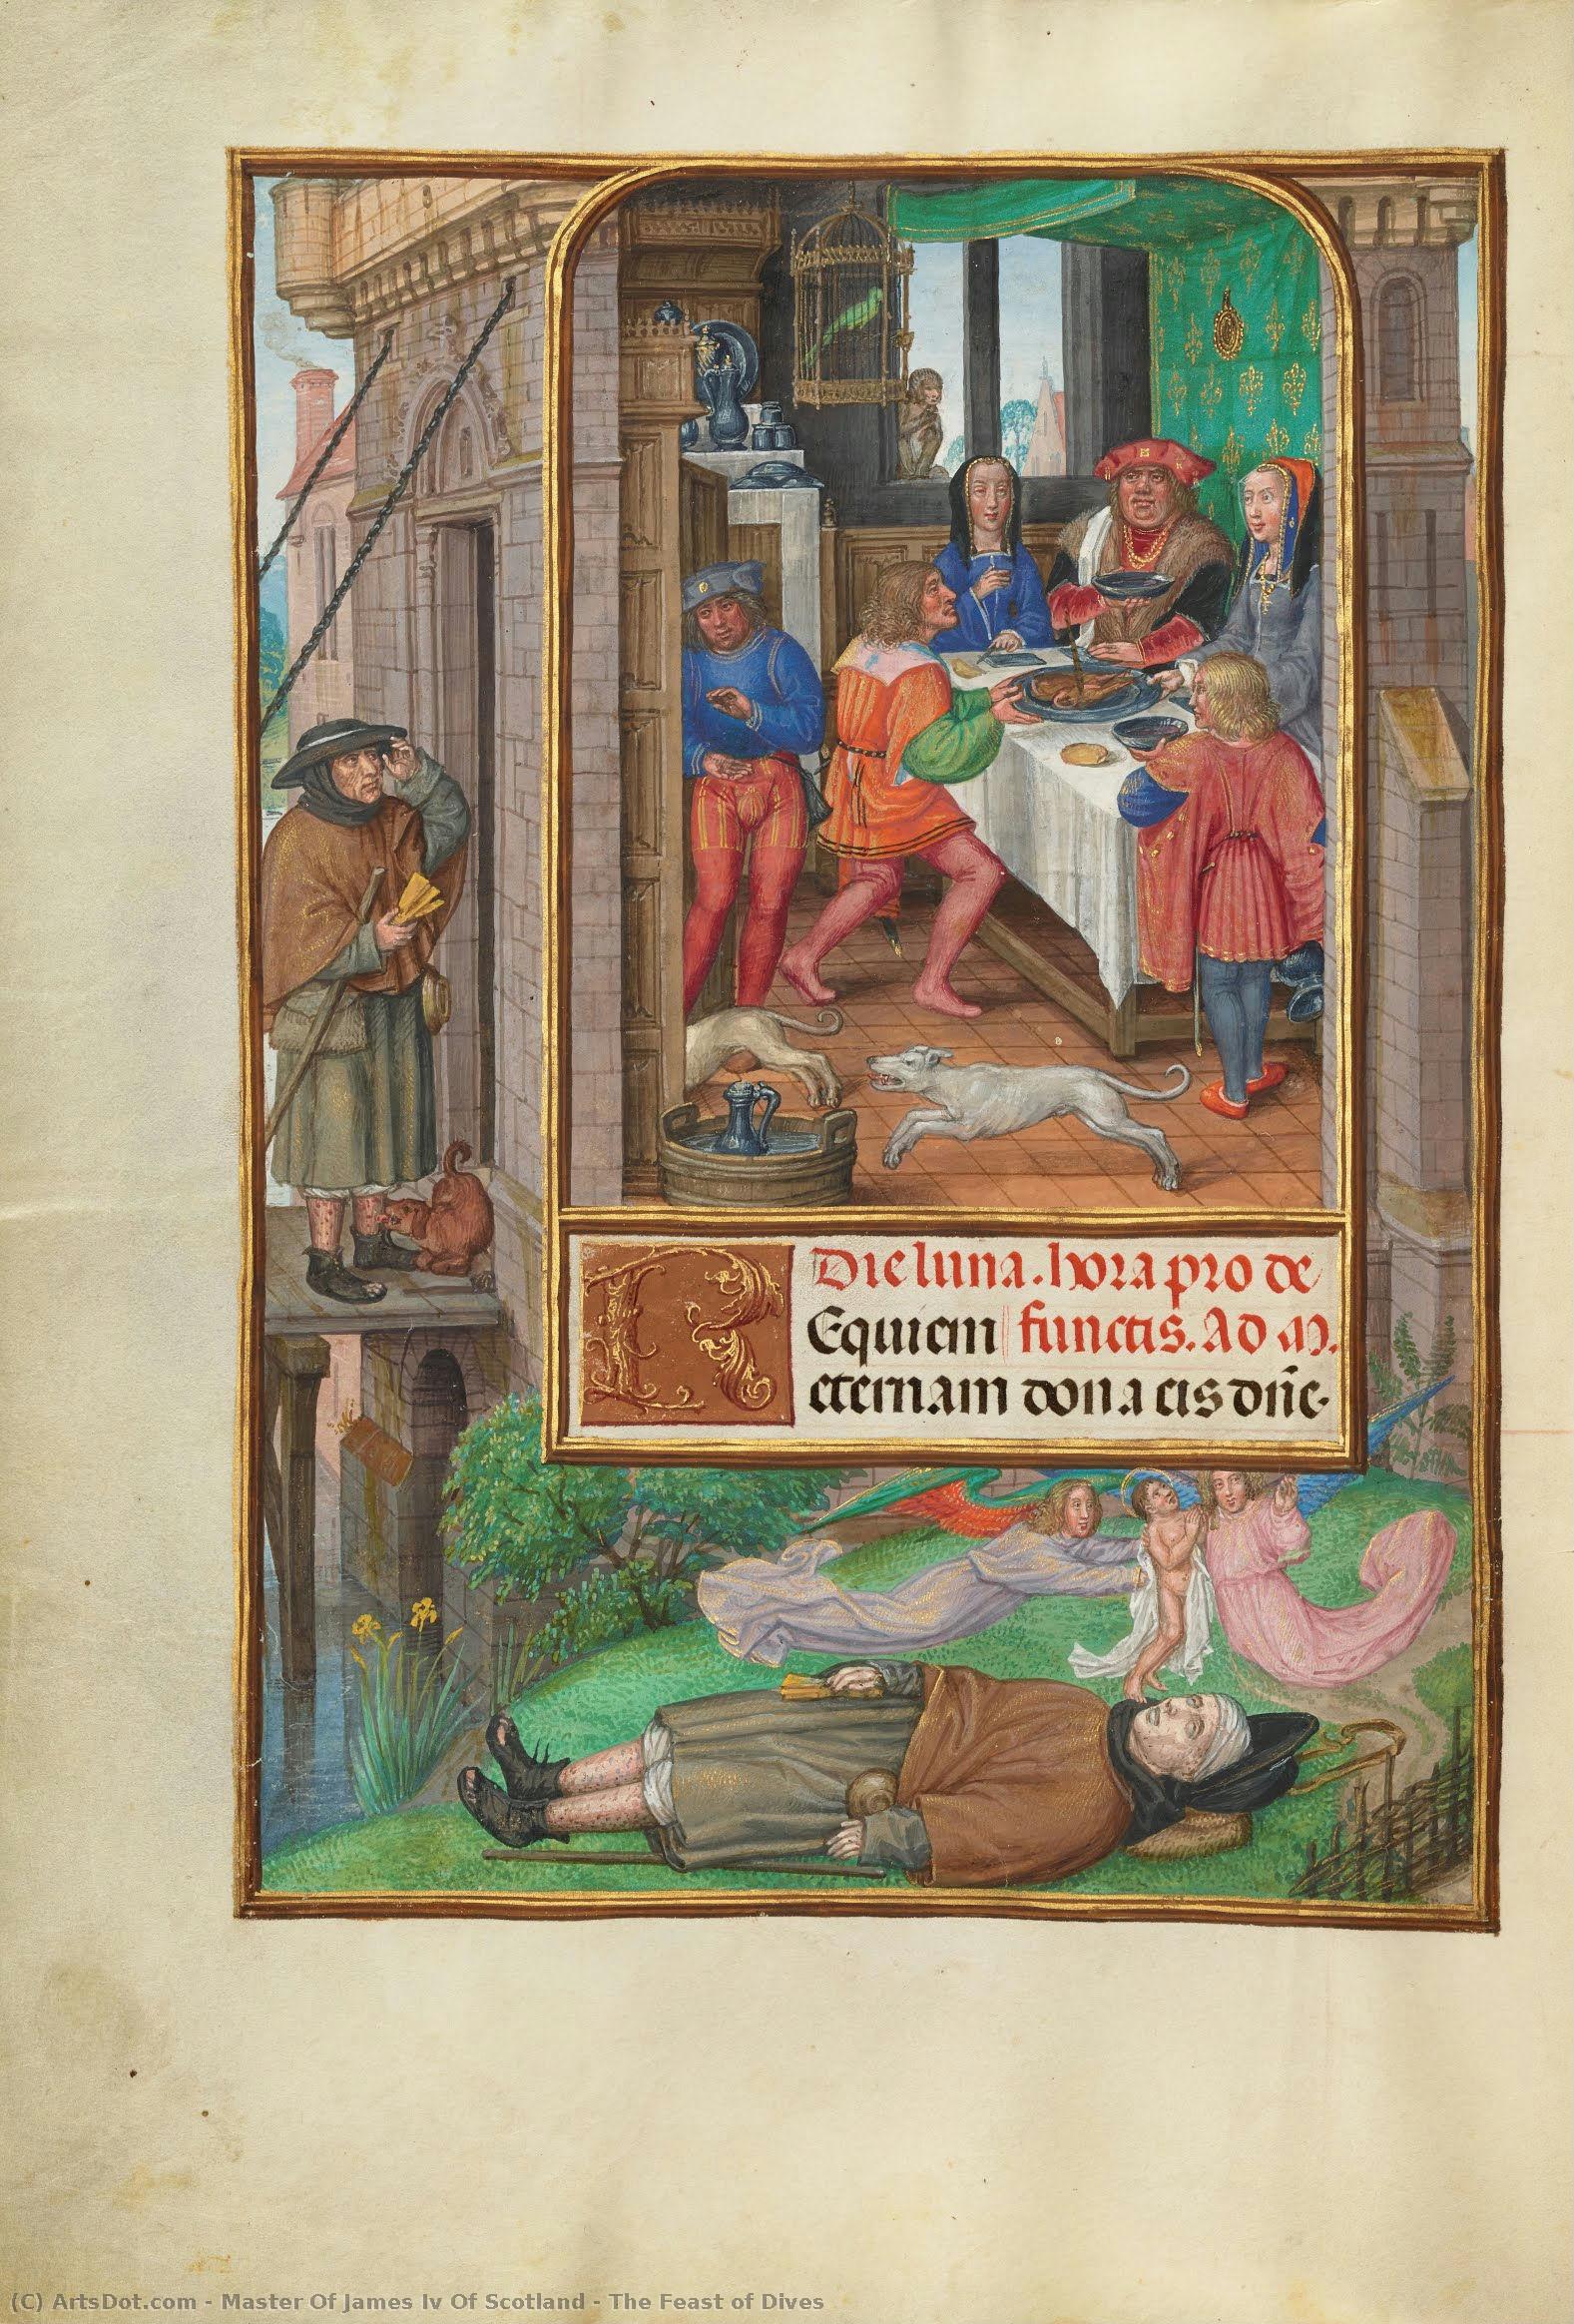 Die lune. hora pro de
Equiem functis. Ad M.
eternam dona eis dñe.
(C) ArtsDot.com - Master Of James Iv Of Scotland - The Feast of Dives